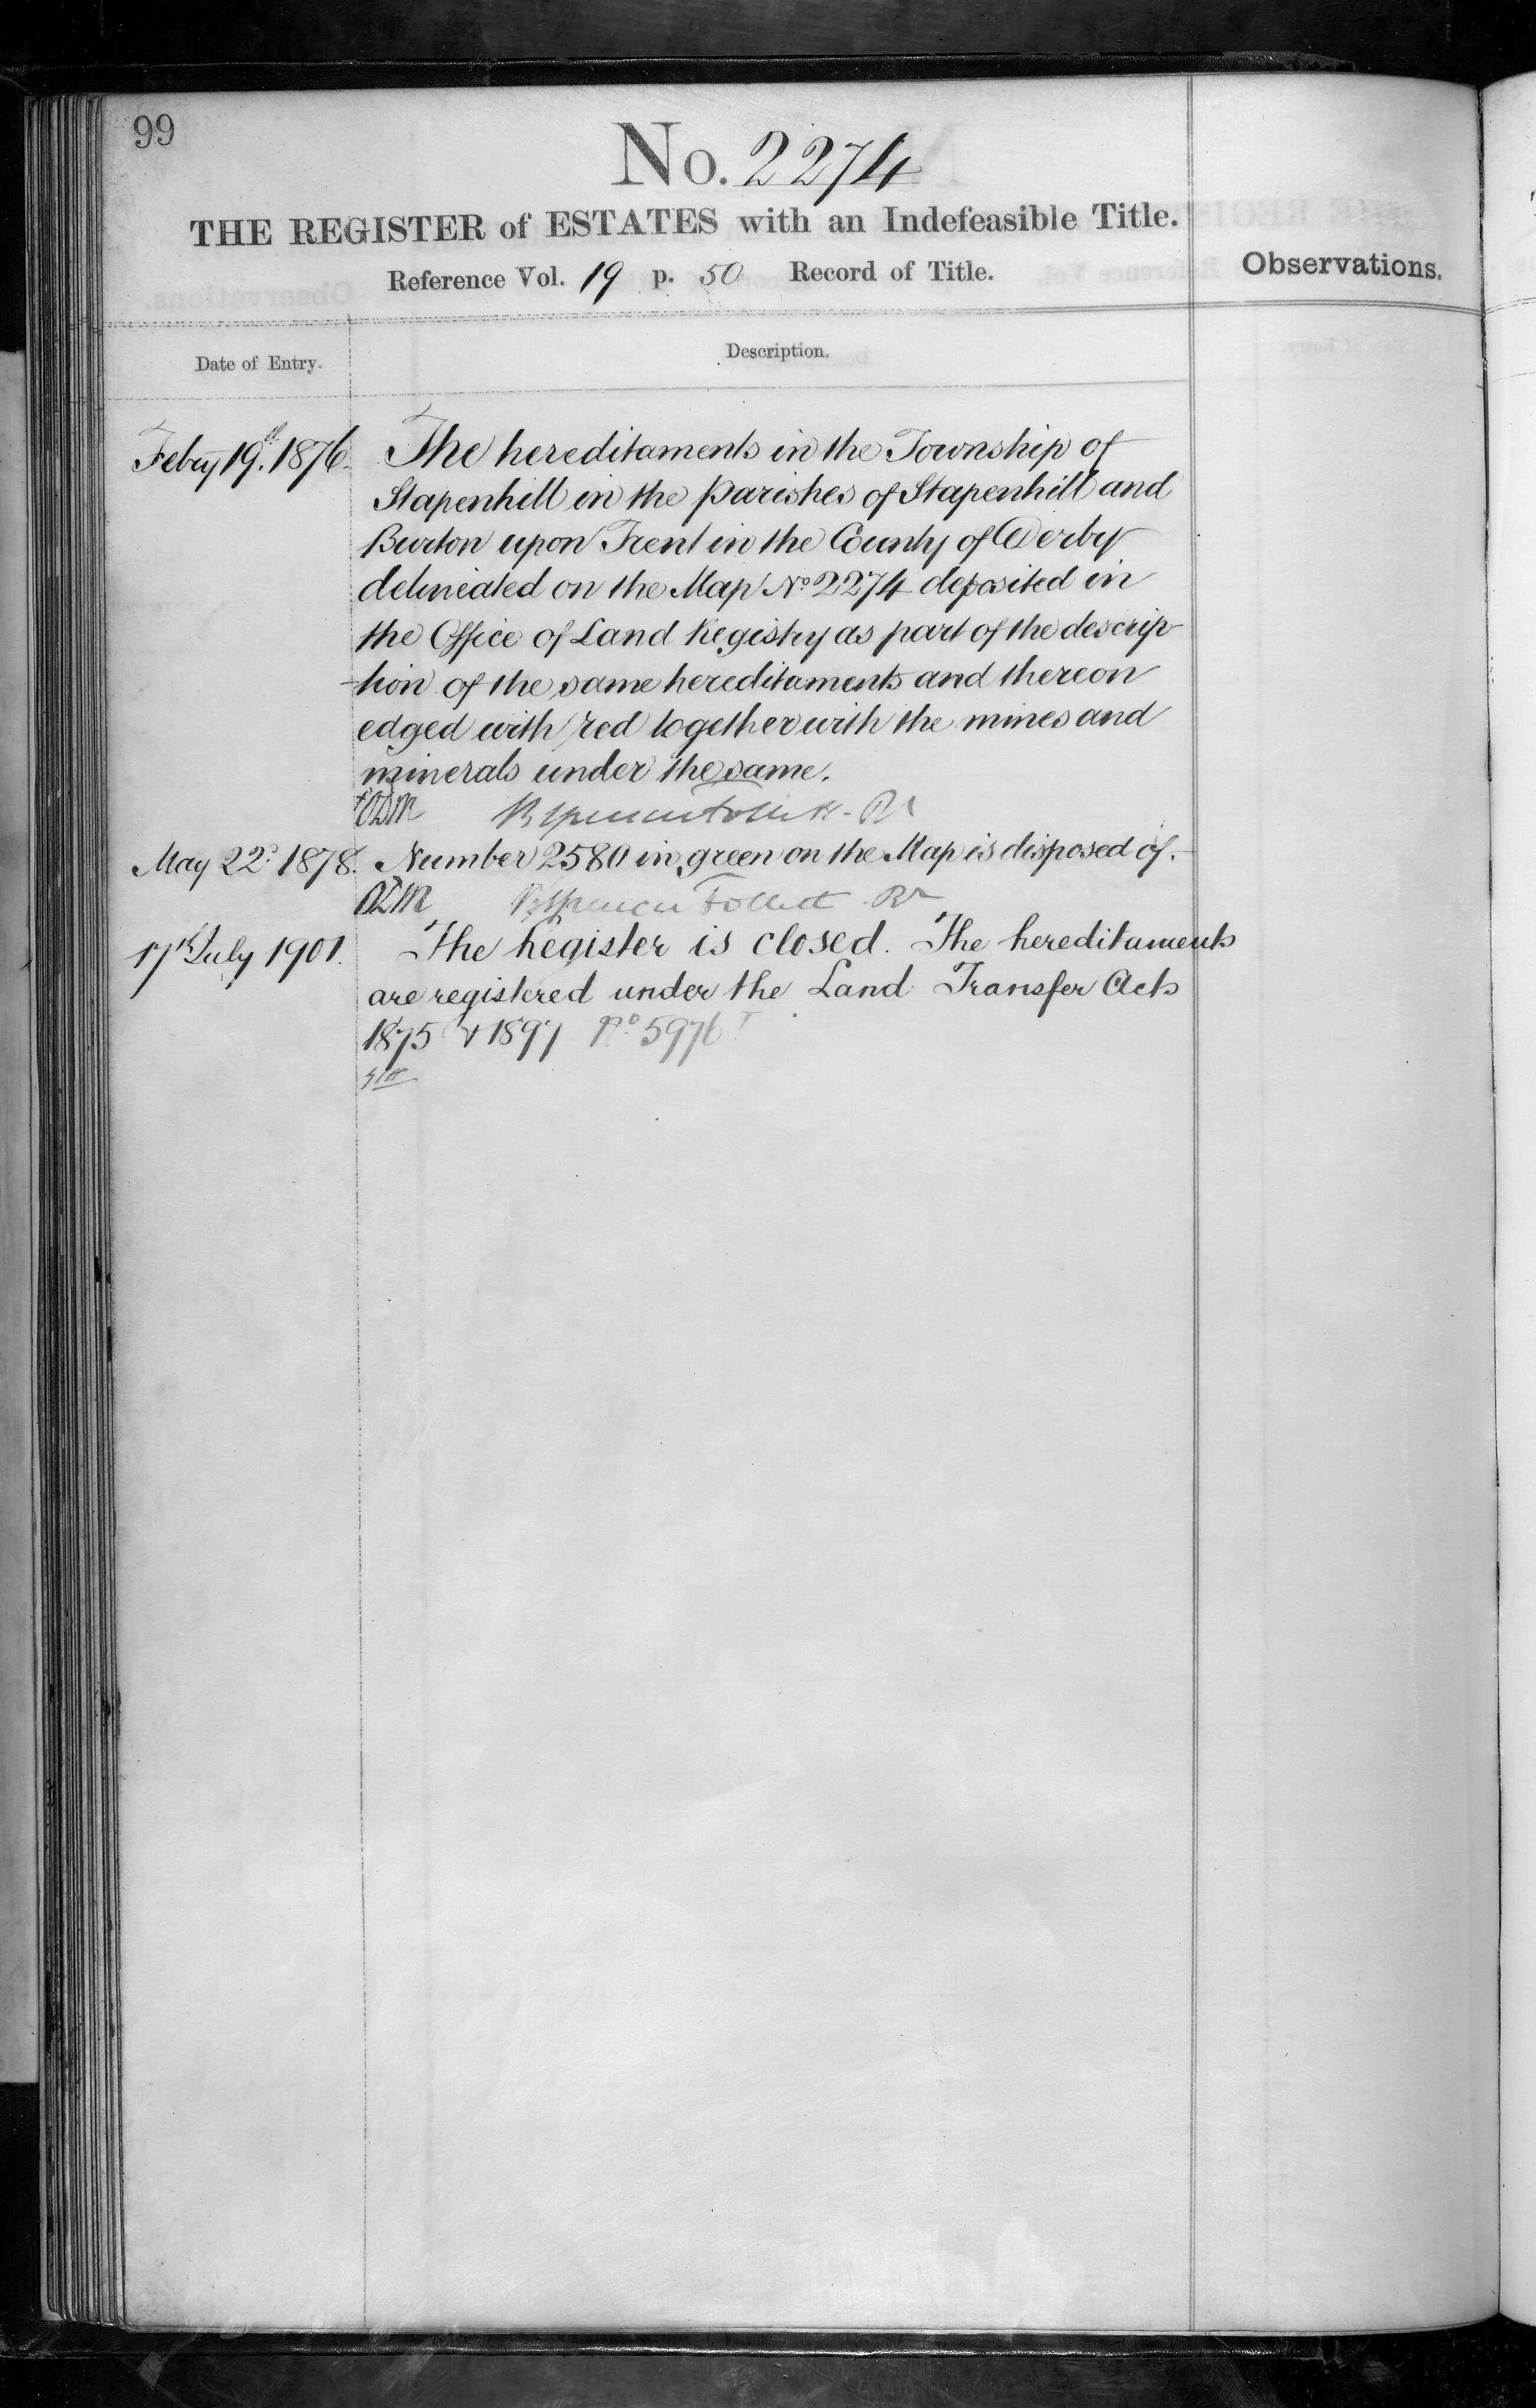 99
No. 2274
THE REGISTER of ESTATES with an Indefeasible Title.
Reference Vol. 19 p. 50 Record of Title.
Observations.
Date of Entry.
Description.
Febry 19th. 1876. The hereditaments in the Township of
Stapenhill in the parishes of Stapenhill and
Burton upon Trent in the County of Derby
delineated on the Map No 2274 deposited in
the Office of Land Registry as part of the descrip-
-tion of the same hereditaments and thereon
edged with red together with the mines and
minerals under the same.
Spencer Follett. Rr
May 22d 1878. Number 2580 in green on the Map is disposed of.
Spencer Follett. Rr
17th July 1901. The Register is closed. The hereditaments
are registered under the Land Transfer Acts
1875 & 1897 No 5976